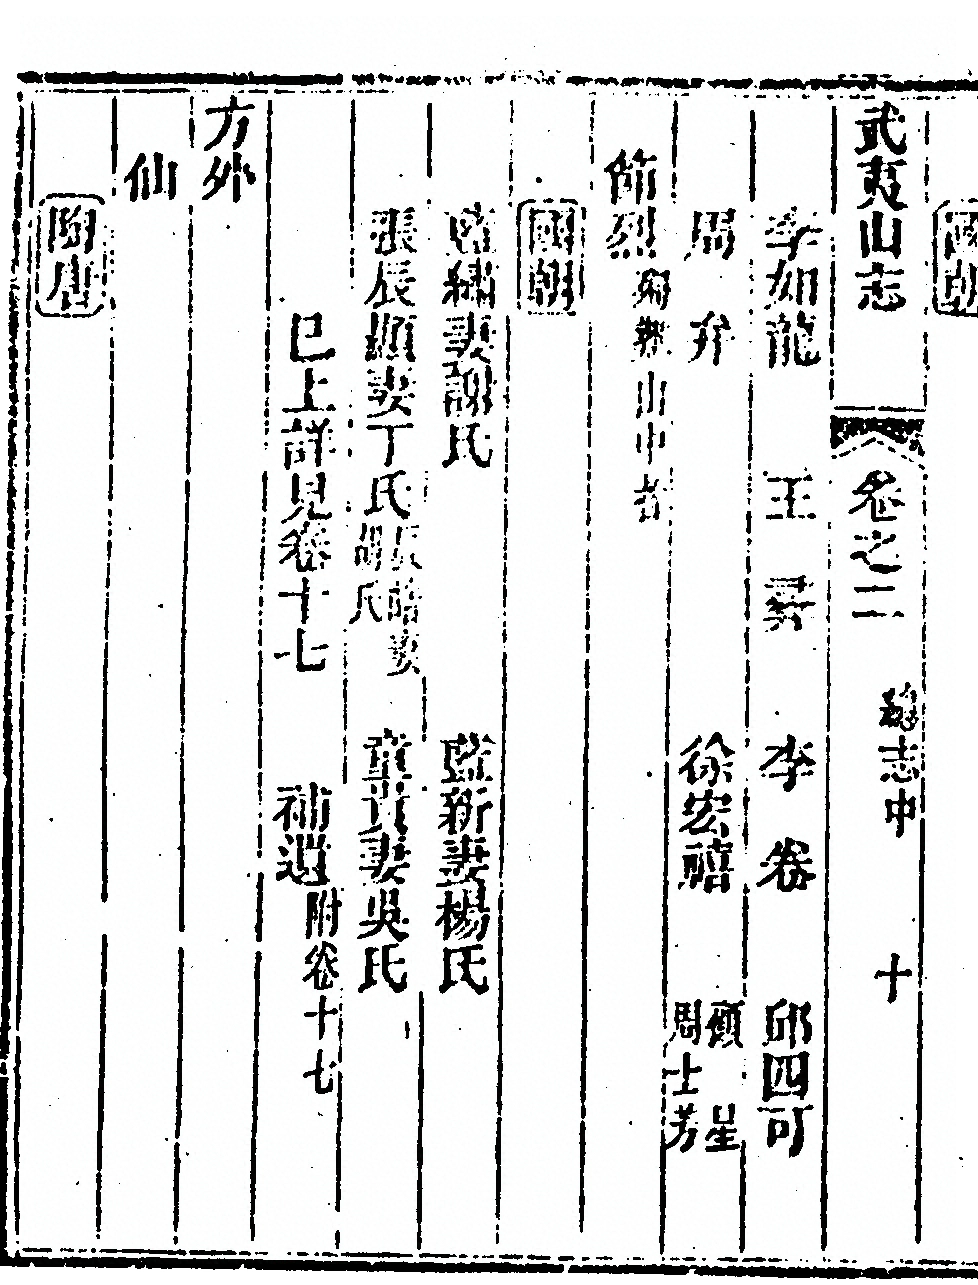 國朝
武夷山志 卷之二 總志中 十
李如龍 王 李卷 邱四可
周弁 徐宏禧 周士芳
節烈 山中者
國朝
藍繡妻謝氏 藍新妻楊氏
張辰顯妻丁氏 張皓妻胡氏 童貞妻吳氏
已上詳見卷十七 補遺附卷十七
方外
仙
陶唐